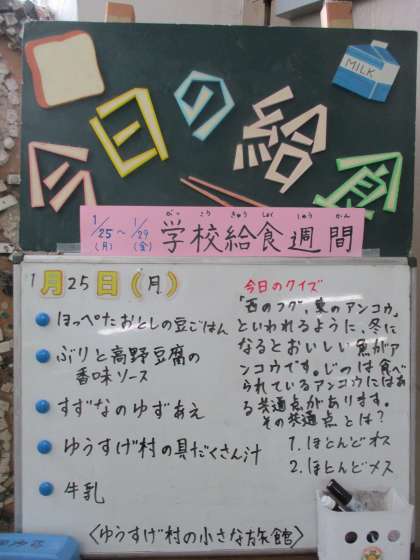 MILK
今日の給食
1/25(月)～1/29(金)
がっこうきゅうしょくしゅうかん
学校給食週間
1月25日(月)
ほっぺたおとしの豆ごはん
ぶりと高野豆腐の
香味ソース
すずなのゆずあえ
ゆうすげ村の具だくさん汁
牛乳
〈ゆうすげ村の小さな旅館〉
今日のクイズ
「西のフグ、東のアンコウ」
といわれるように、冬に
なるとおいしい魚がア
ンコウです。じつは食べ
られているアンコウにはあ
る共通点があります。
その共通点とは？
1. ほとんどオス
2. ほとんどメス